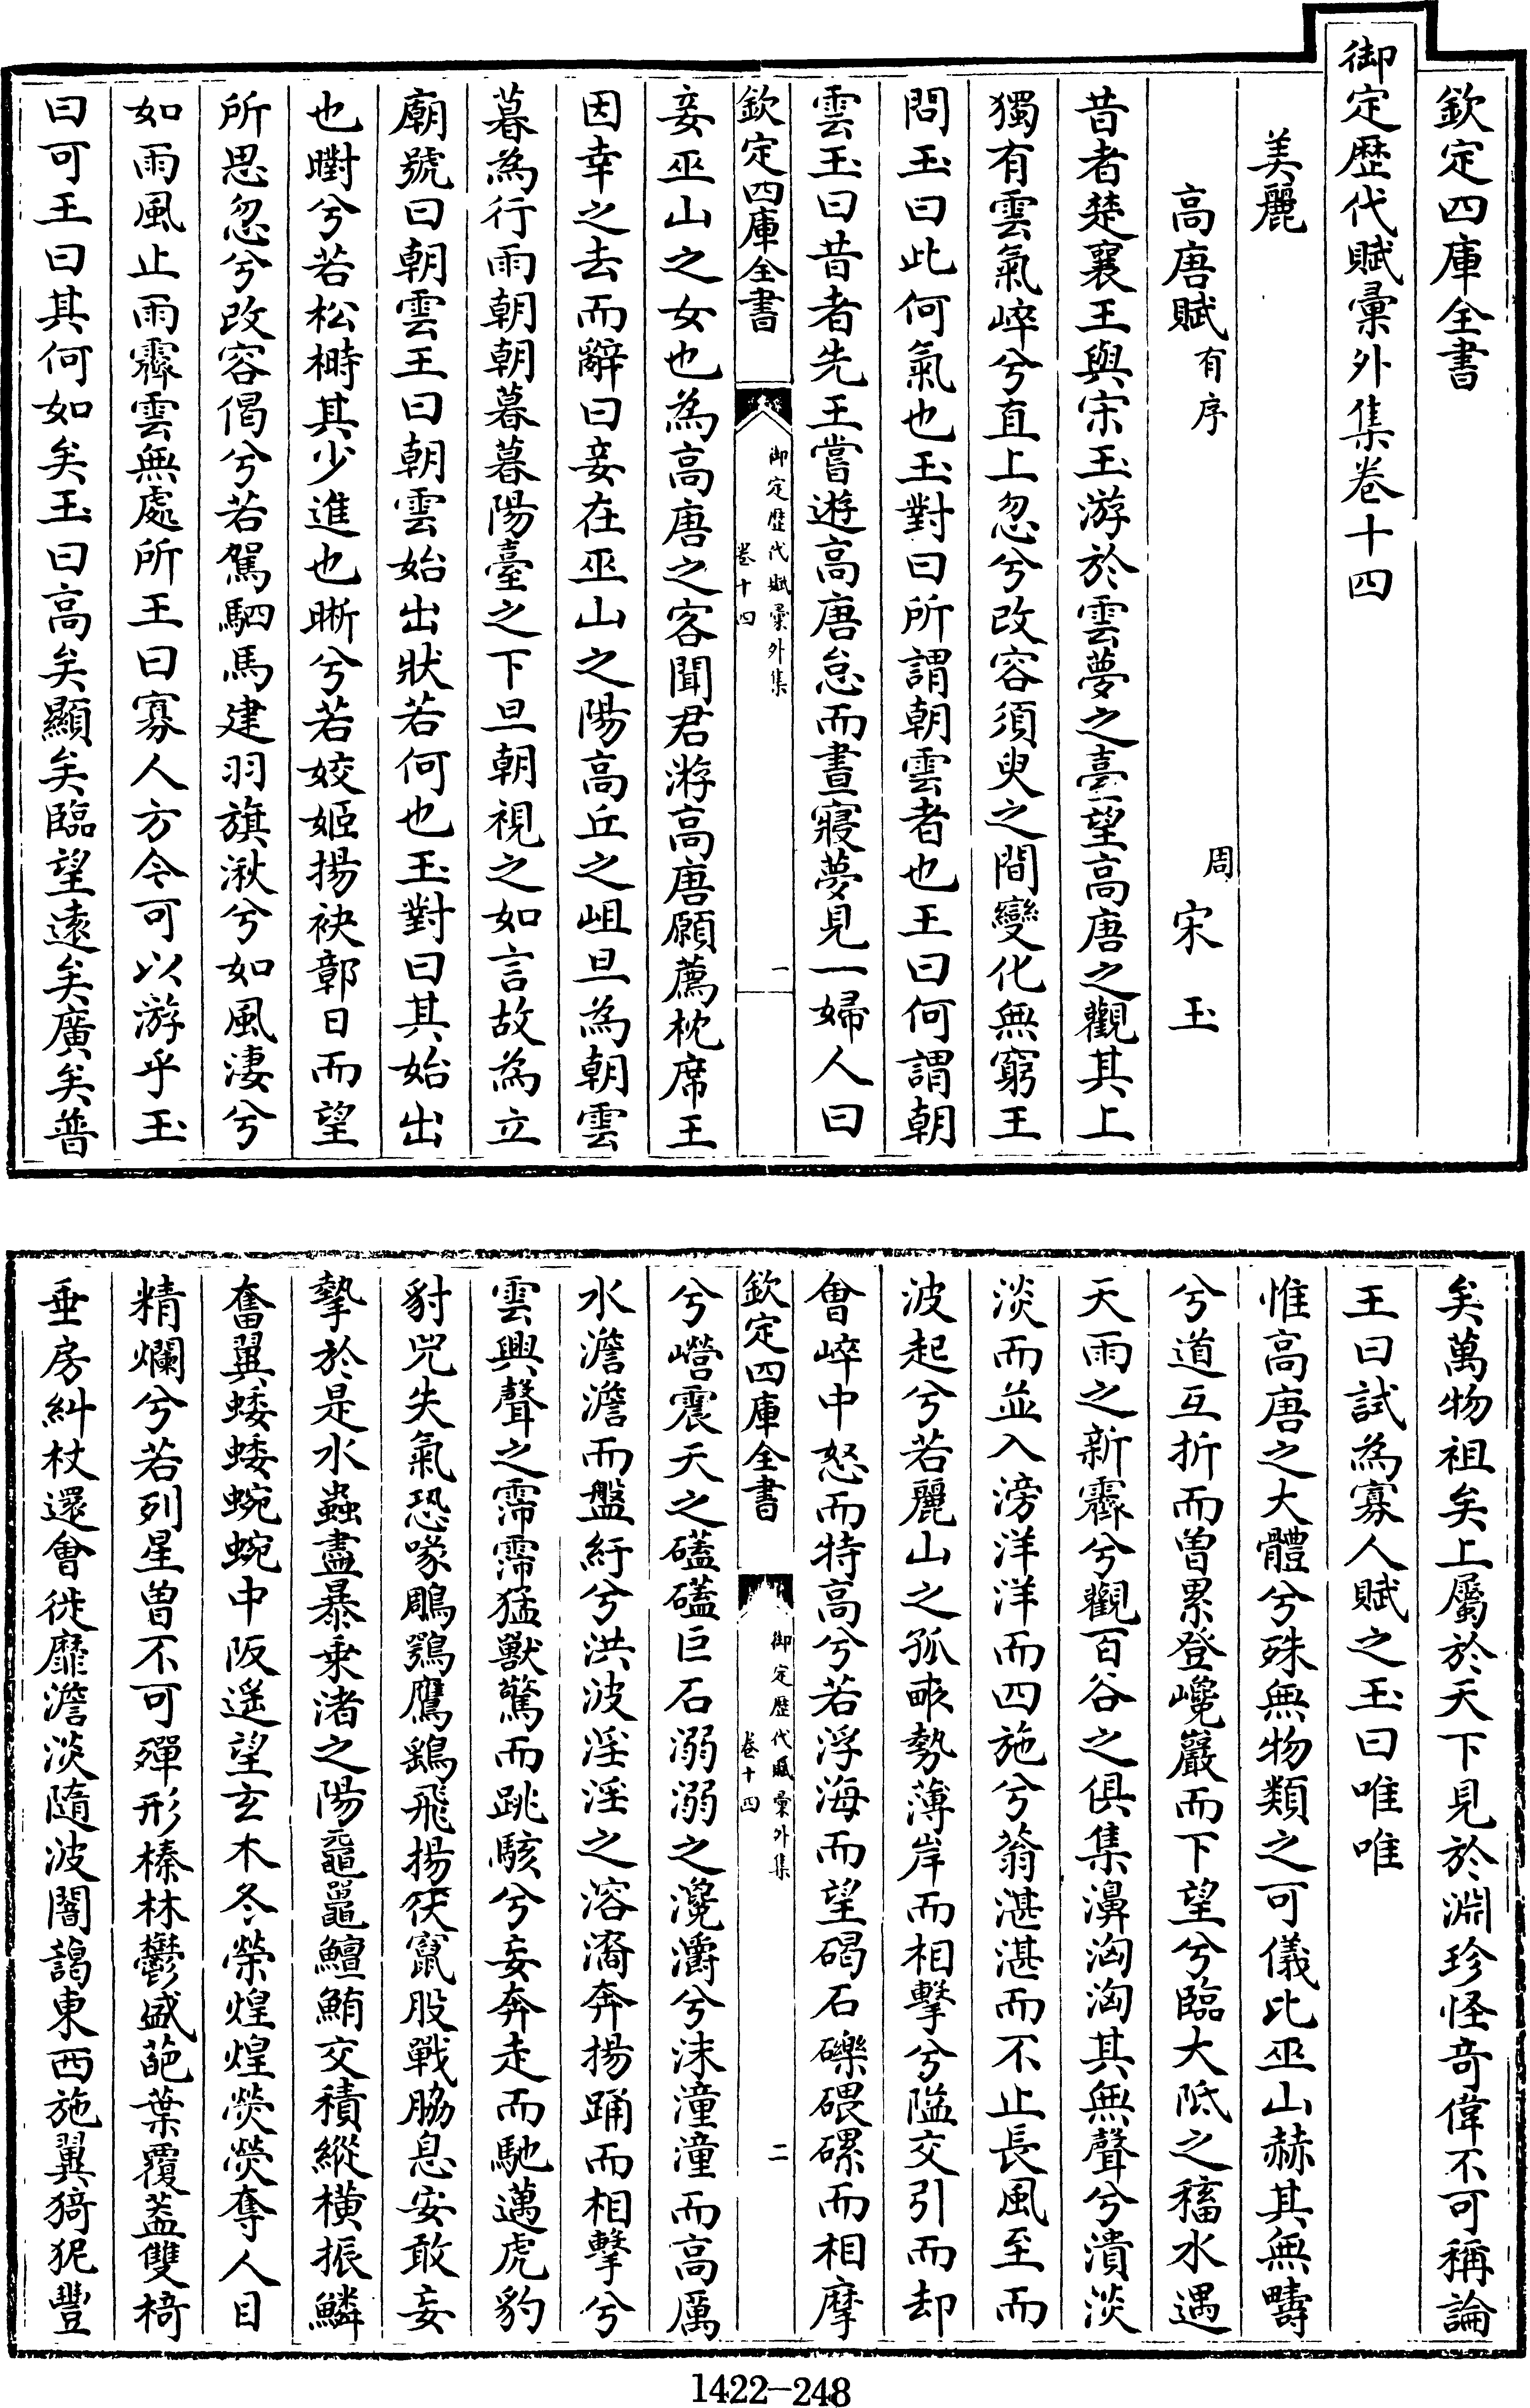 欽定四庫全書
御定歷代賦彙外集卷十四
美麗
高唐賦有序
周
宋玉
昔者楚襄王與宋玉游於雲夢之臺望高唐之觀其上
獨有雲氣崪兮直上忽兮改容須臾之間變化無窮王
問玉曰此何氣也玉對曰所謂朝雲者也王曰何謂朝
雲玉曰昔者先王嘗遊高唐怠而晝寢夢見一婦人曰
欽定四庫全書
御定歷代賦彙外集
卷十四
一
妾巫山之女也為高唐之客聞君游高唐願薦枕席王
因幸之去而辭曰妾在巫山之陽高丘之岨旦為朝雲
暮為行雨朝朝暮暮陽臺之下旦朝視之如言故為立
廟號曰朝雲王曰朝雲始出狀若何也玉對曰其始出
也㬣兮若松榯其少進也晰兮若姣姬揚袂鄣日而望
所思忽兮改容偈兮若駕駟馬建羽旗湫兮如風淒兮
如雨風止雨霽雲無處所王曰寡人方今可以游乎玉
曰可王曰其何如矣玉曰高矣顯矣臨望遠矣廣矣普
矣萬物祖矣上屬於天下見於淵珍怪奇偉不可稱論
王曰試為寡人賦之玉曰唯唯
惟高唐之大體兮殊無物類之可儀比巫山赫其無疇
兮道互折而曾累登巉巖而下望兮臨大阺之稸水遇
天雨之新霽兮觀百谷之俱集濞洶洶其無聲兮潰淡
淡而並入滂洋洋而四施兮蓊湛湛而不止長風至而
波起兮若麗山之孤畝勢薄岸而相擊兮隘交引而却
會崪中怒而特高兮若浮海而望碣石礫磥磥而相摩
欽定四庫全書
御定歷代賦彙外集
卷十四
二
兮巆震天之礚礚巨石溺溺之瀺灂兮沫潼潼而高厲
水澹澹而盤紆兮洪波淫淫之溶㵝奔揚踊而相擊兮
雲興聲之霈霈猛獸驚而跳駭兮妄奔走而馳邁虎豹
豺兕失氣恐喙鵰鶚鷹鷂飛揚伏竄股戰脇息安敢妄
摯於是水蟲盡暴乗渚之陽黿鼉鱣鮪交積縱橫振鱗
奮翼蜲蜲蜿蜿中阪遙望玄木冬榮煌煌熒熒奪人目
精爛兮若列星曾不可殫形榛林鬱盛葩葉覆蓋雙椅
垂房糾枝還會徙靡澹淡隨波闇藹東西施翼猗狔豐
1422-248